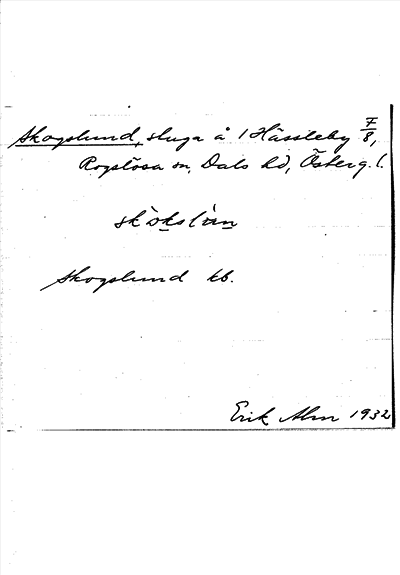 Skogslund, stuga å 1 Hässleby 7/8,
Rogslösa sn, Dals hd, Österg. l.
skokslùn
Skogslund kb.
Erik Alm 1932